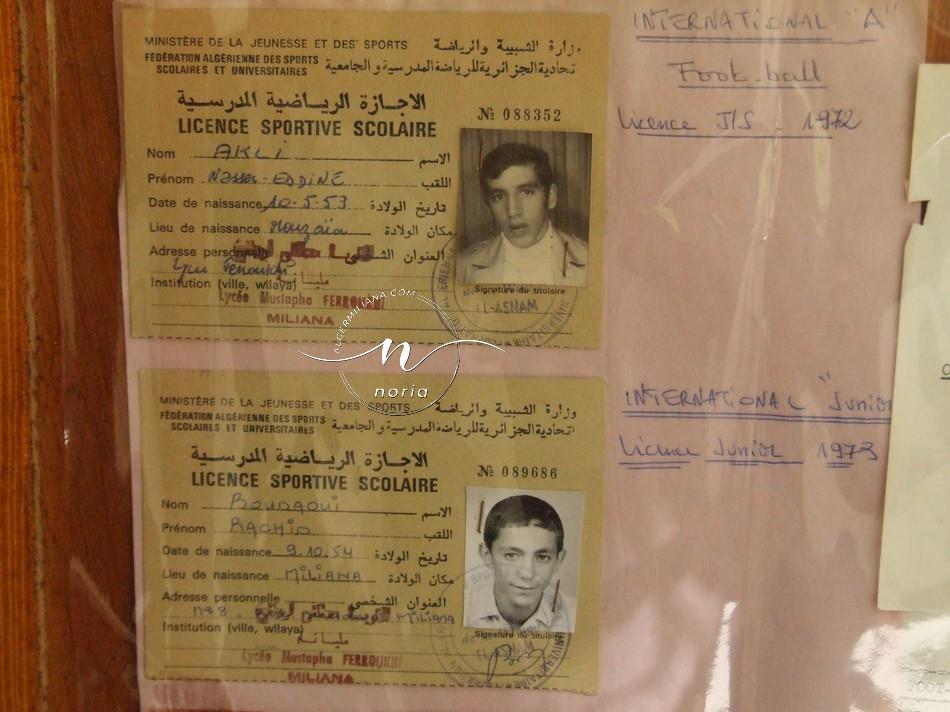 MINISTÈRE DE LA JEUNESSE ET DES SPORTS وزارة الشبيبة والرياضة
FÉDÉRATION ALGÉRIENNE DES SPORTS SCOLAIRES ET UNIVERSITAIRES اتحادية الجزائرية للرياضة المدرسية والجامعية
الاجازة الرياضية المدرسية
LICENCE SPORTIVE SCOLAIRE
№ 088352
Nom AKLI الاسم
Prénom Nasser-EDDINE اللقب
Date de naissance 10-5-53 تاريخ الولادة
Lieu de naissance Mouzaïa مكان الولادة
Adresse personnelle العنوان
Institution (ville, wilaya) مليانة
Lycée Mustapha FERROUKHI
MILIANA
Signature du titulaire
EL-ASNAM
INTERNATIONAL "A"
Foot-ball
Licence J/S - 1972
ALGERMILIANA.COM
n
noria
MINISTÈRE DE LA JEUNESSE ET DES SPORTS وزارة الشبيبة والرياضة
FÉDÉRATION ALGÉRIENNE DES SPORTS SCOLAIRES ET UNIVERSITAIRES اتحادية الجزائرية للرياضة المدرسية والجامعية
الاجازة الرياضية المدرسية
LICENCE SPORTIVE SCOLAIRE
№ 089686
Nom الاسم
Prénom RACHID اللقب
Date de naissance 9.10.54 تاريخ الولادة
Lieu de naissance MILIANA مكان الولادة
Adresse personnelle العنوان الشخصي
MILIANA
Institution (ville, wilaya) مليانة
Lycée Mustapha FERROUKHI
MILIANA
Signature du titulaire
INTERNATIONAL "Junior
Licence Junior 1973
FOOT-